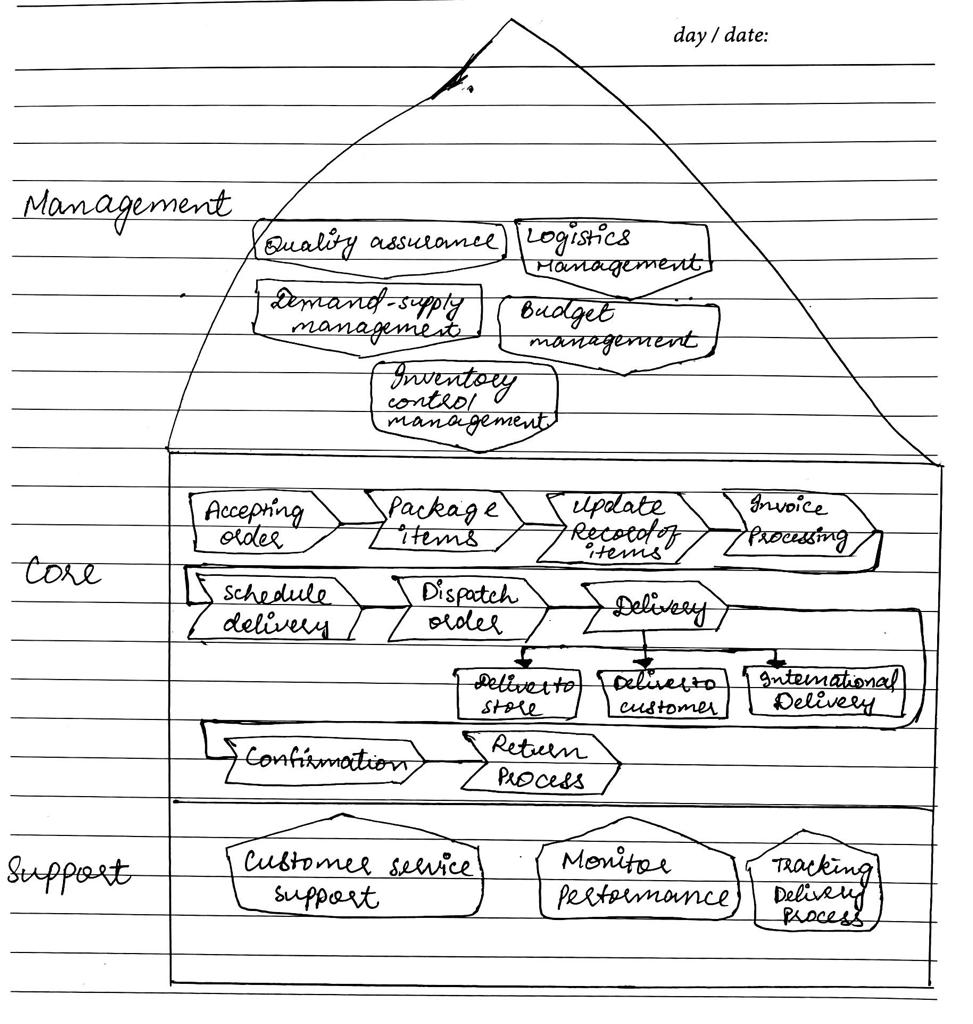 day / date:
Management
Quality assurance
Logistics
Management
Demand-supply
management
Budget
management
Inventory
control
management
Core
Accepting
order
Package
items
Update
Record of
items
Invoice
Processing
Schedule
delivery
Dispatch
order
Delivery
Deliver to
store
Deliver to
customer
International
Delivery
Confirmation
Return
Process
Support
Customer service
support
Monitor
Performance
Tracking
Delivery
Process